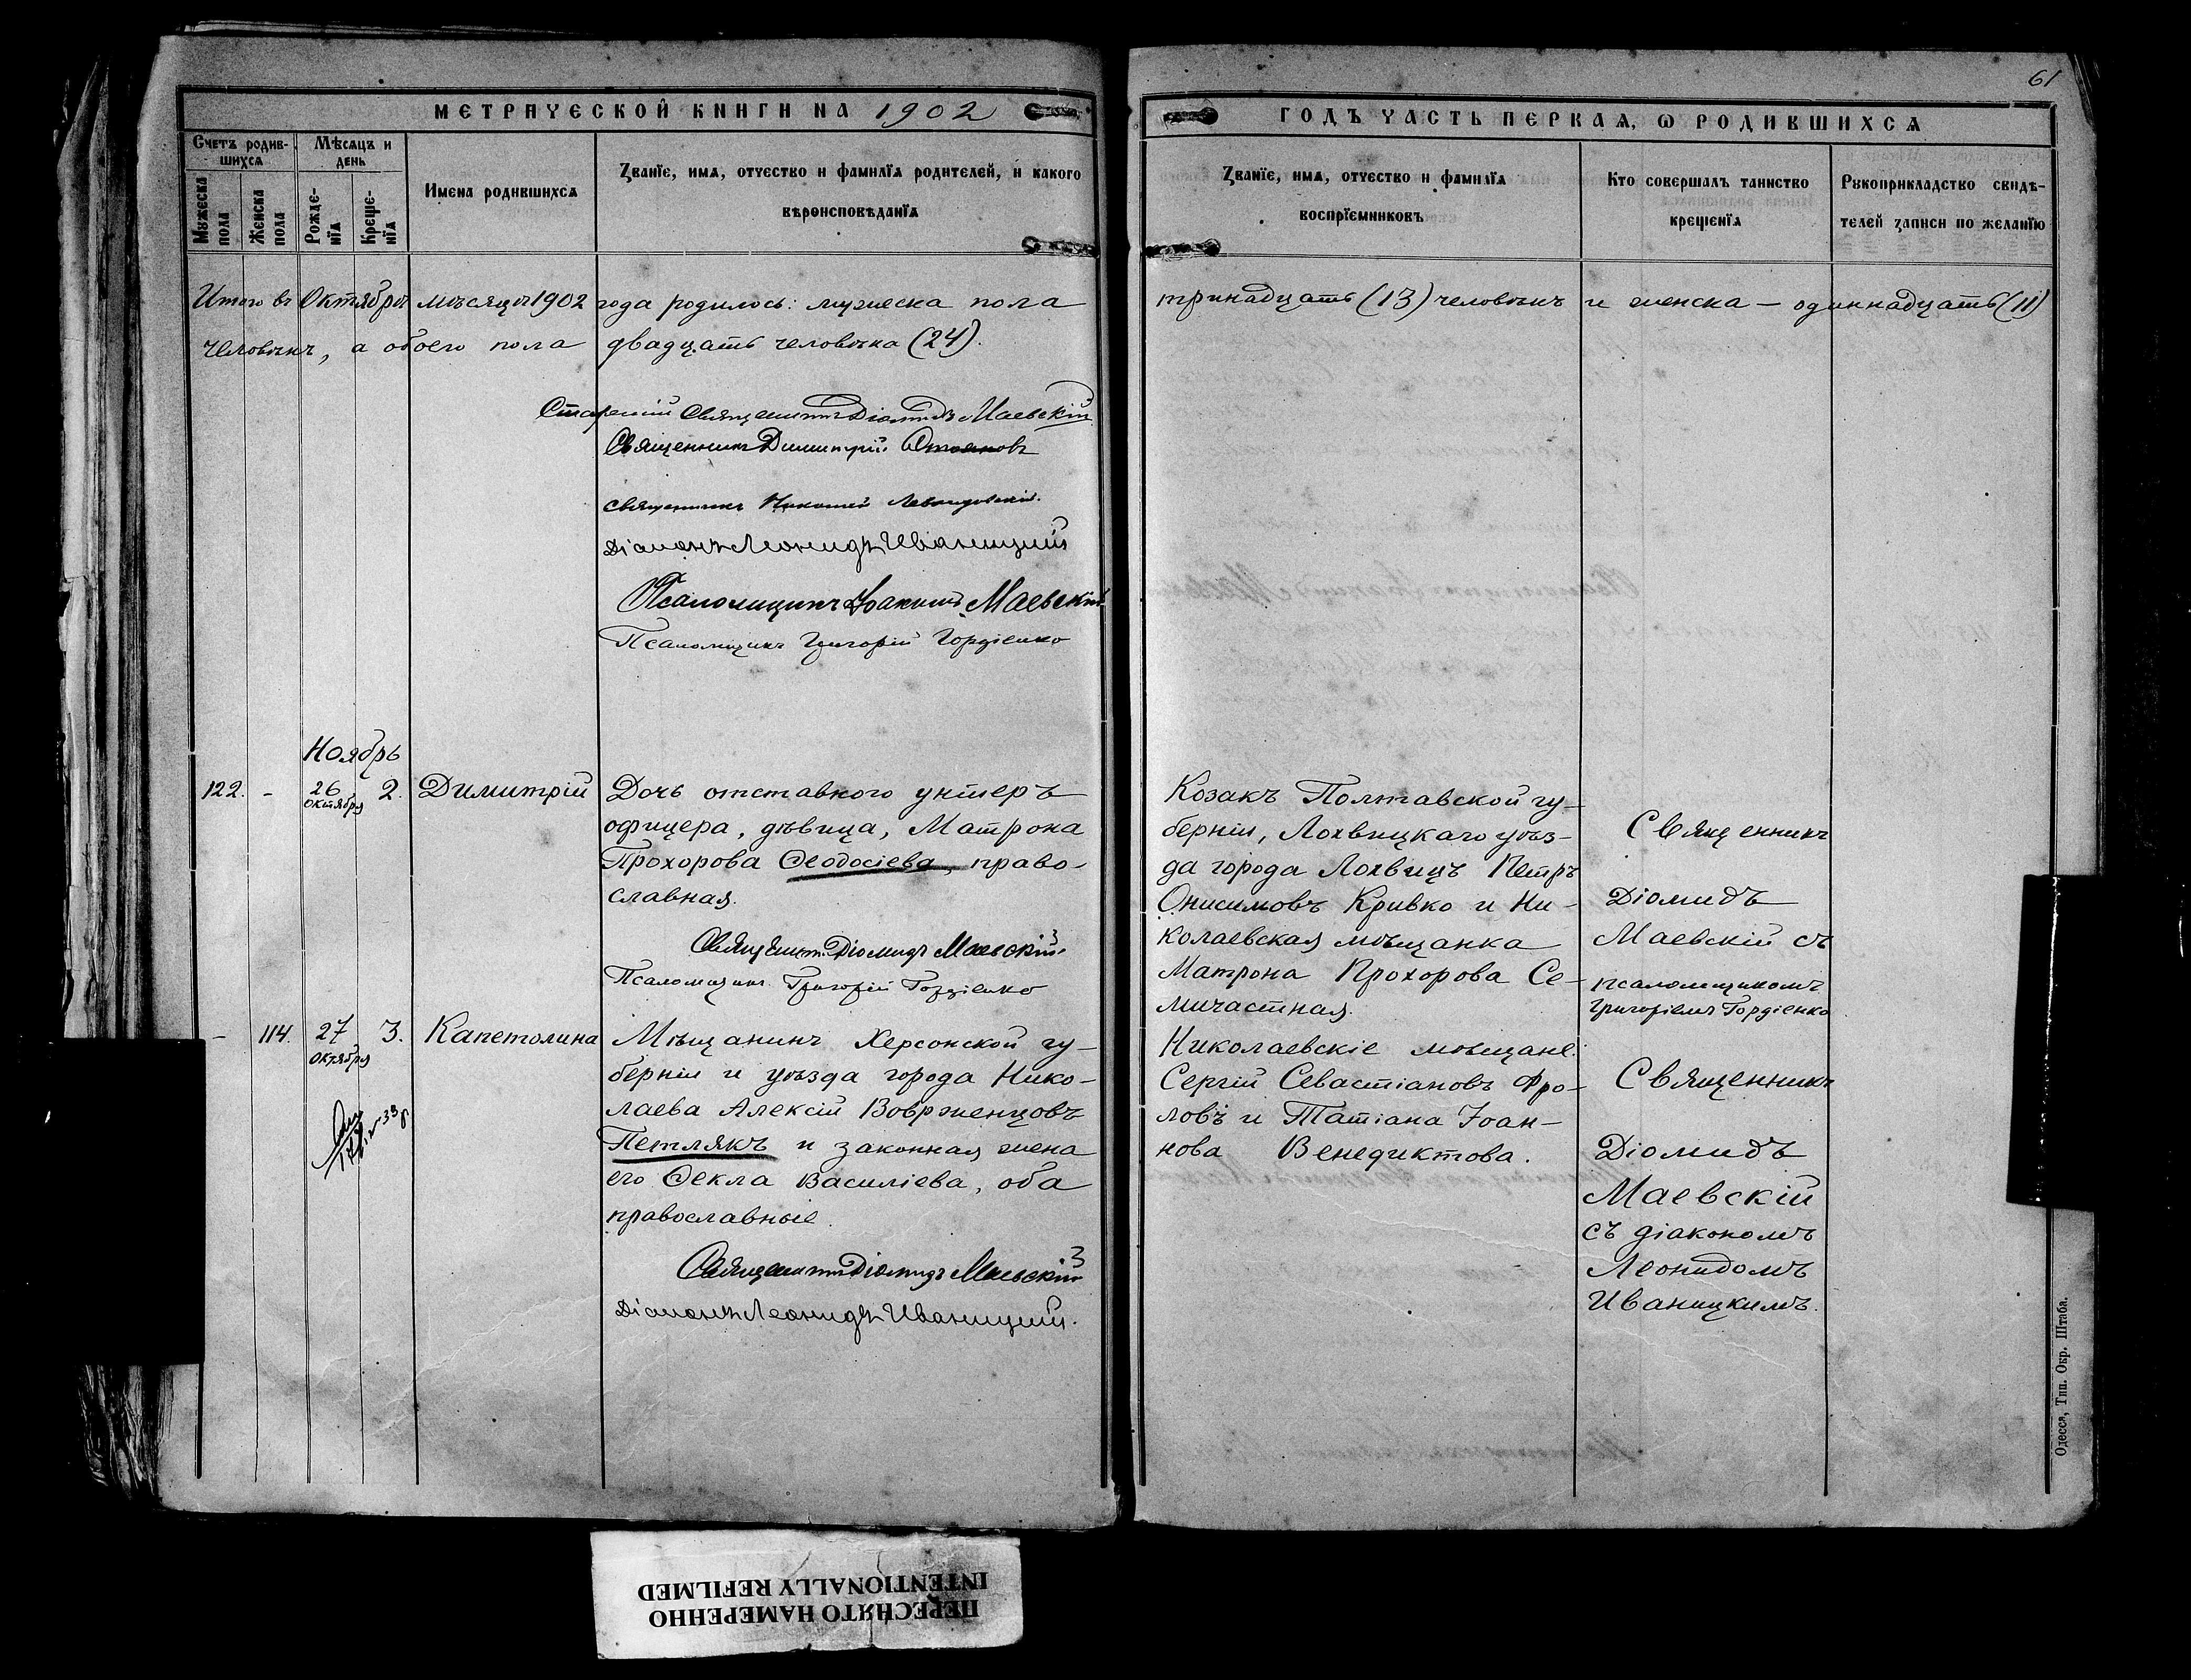 61
МЕТРИЧЕСКОЙ КНИГИ НА 1902
ГОДЪ ЧАСТЬ ПЕРВАЯ, Ѡ РОДИВШИХСЯ
Счетъ родив-
шихся
Мужеска
пола
Женска
пола
Мѣсяцъ и
день
Рожде-
нїя
Креще-
нїя
Имена родившихся
Званїе, имя, отчество и фамилїя родителей, и какого
вѣроисповѣданїя
Званїе, имя, отчество и фамилїя
воспрїемниковъ
Кто совершалъ таинство
крещенїя
Рукоприкладство свидѣ-
телей записи по желанїю
Итого въ Октябрѣ мѣсяцѣ 1902 года родилось: мужеска пола
тринадцать (13) человѣкъ и женска – одиннадцать (11)
человѣкъ, а обоего пола двадцать человѣка (24).
Старшій Священникъ Діомидъ Маевскій
Священникъ Димитрій Стояновъ
Священникъ Николай Левандовскій.
Діаконъ Леонидъ Иваницкий
Псаломщикъ Іоакимъ Маевскій
Псаломщикъ Григорій Гордіенко
Ноябрь
122. - 26 Октября 2. Димитрій
Дочь отставного унтеръ
офицера, дѣвица, Матрона
Прохорова Ѳеодосіева, право-
славная.
Священникъ Діомидъ Маевскій
Псаломщикъ Григорій Гордіенко
Козакъ Полтавской гу-
берніи, Лохвицкаго уѣз-
да города Лохвицъ Петръ
Онисимовъ Кривко и Ни-
колаевская мѣщанка
Матрона Прохорова Се-
мичастная.
Священникъ
Діомидъ
Маевскій съ
псаломщикомъ
Григоріемъ Гордіенко
- 114. 27 октября 3. Капетолина
Мѣщанинъ Херсонской гу-
берніи и уѣзда города Нико-
лаева Алексій Воврженцовъ
Петлякъ и законная жена
его Ѳекла Василіева, оба
православные.
Священникъ Діомидъ Маевскій
Діаконъ Леонидъ Иваницкий.
Николаевскіе мѣщане:
Сергій Севастіановъ Фро-
ловъ и Татіана Іоан-
нова Венедиктова.
Священникъ
Діомидъ
Маевскій
съ діакономъ
Леонидомъ
Иваницкимъ.
Одесса, Тип. Окр. Штаба.
ПЕРЕСНЯТО НАМЕРЕННО
INTENTIONALLY REFILMED